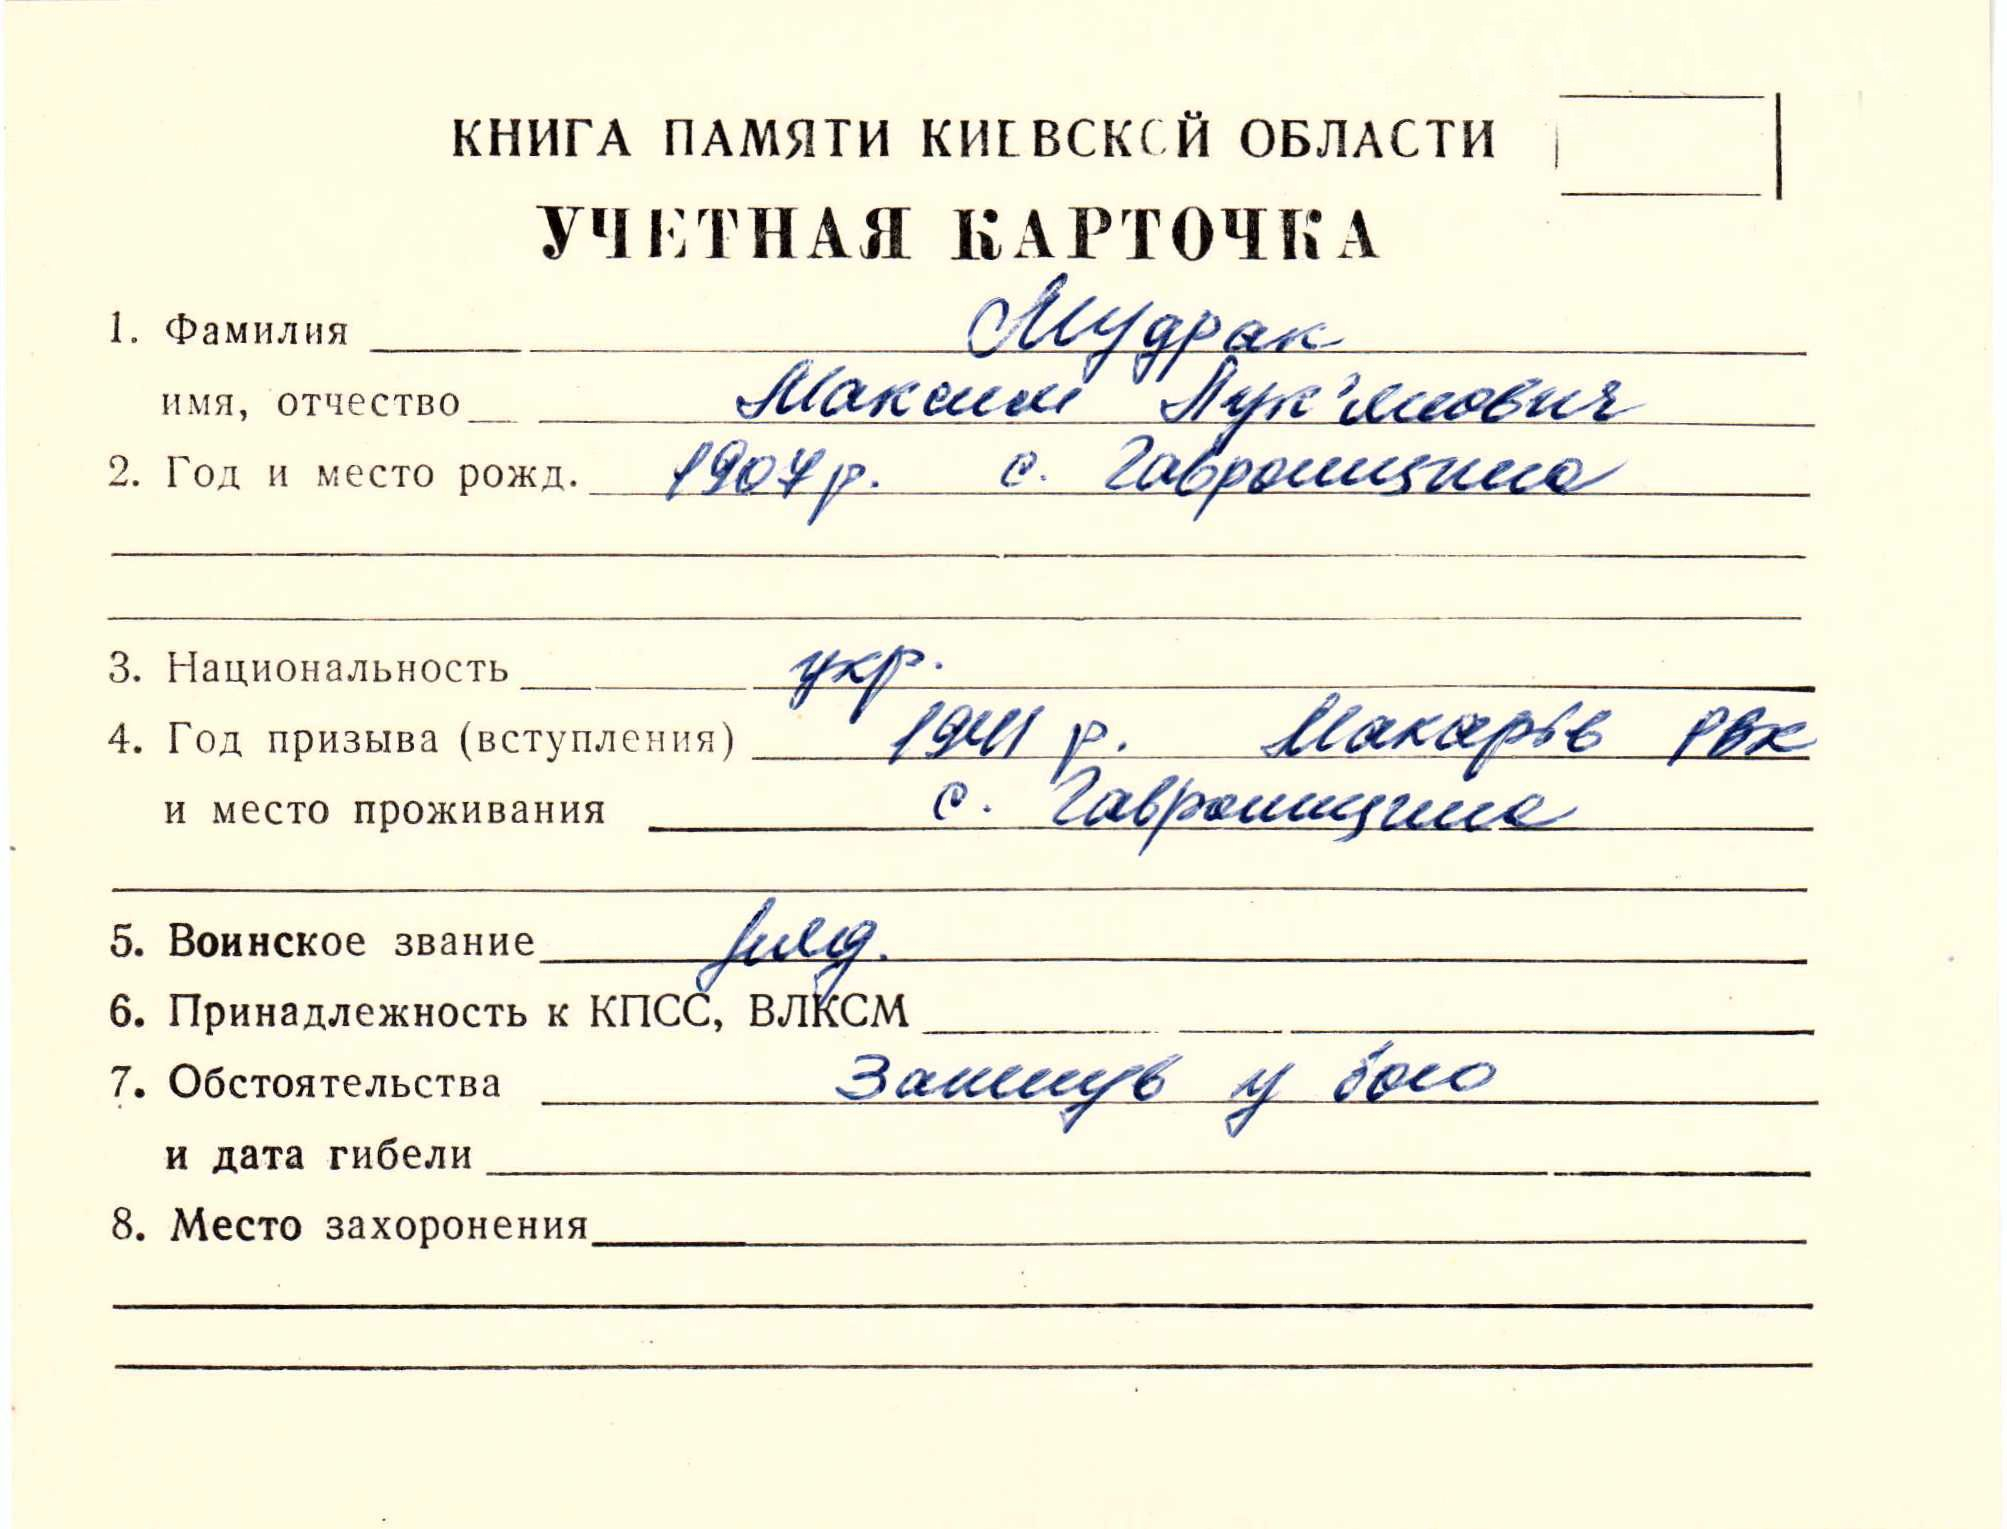 КНИГА ПАМЯТИ КИЕВСКОЙ ОБЛАСТИ
УЧЕТНАЯ КАРТОЧКА
1. Фамилия Мудрак
имя, отчество Максим Лук'янович
2. Год и место рожд. 1907 р. с. Гавронщина
3. Национальность укр.
4. Год призыва (вступления) 1941 р. Макарів РВК
и место проживания с. Гавронщина
5. Воинское звание
6. Принадлежность к КПСС, ВЛКСМ
7. Обстоятельства Загинув у бою
и дата гибели
8. Место захоронения